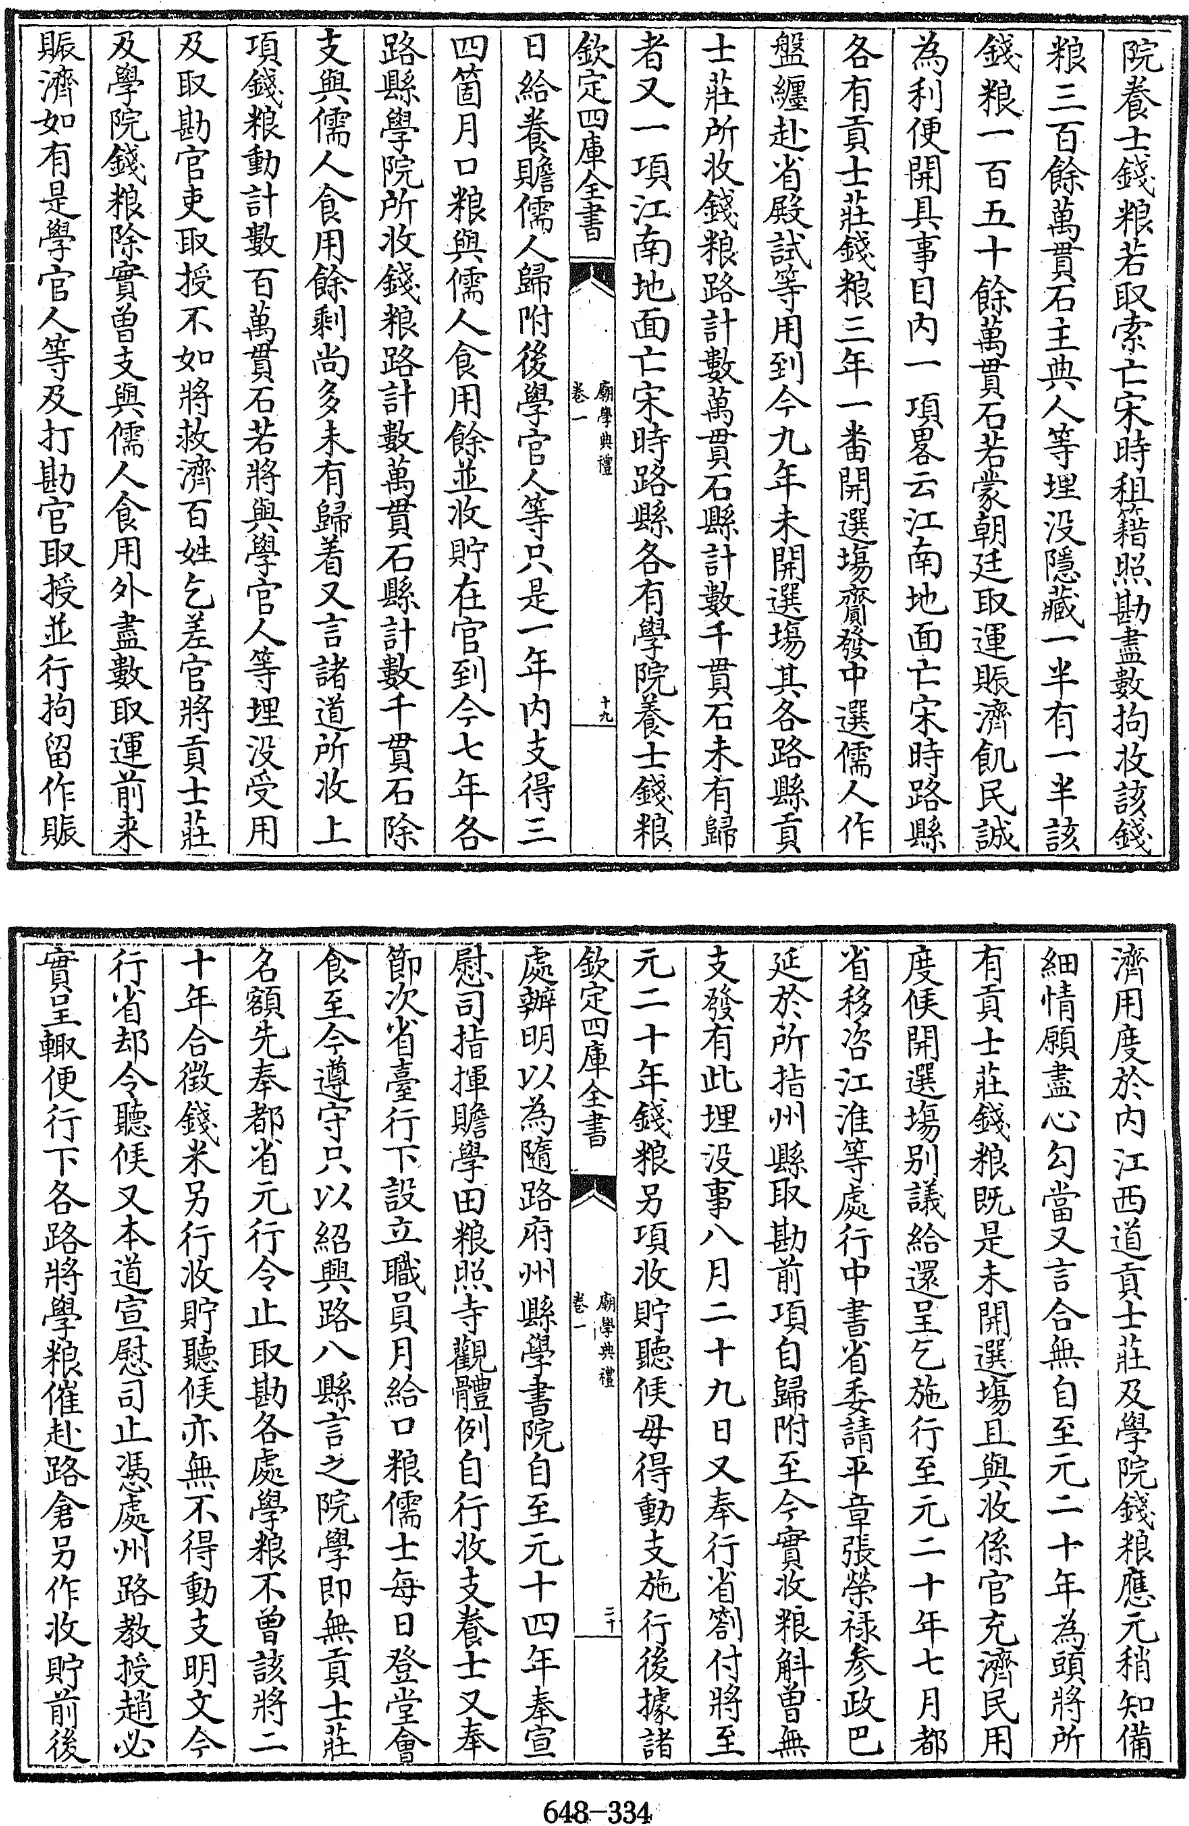 院養士錢粮若取索亡宋時租籍照勘盡數拘收該錢
粮三百餘萬貫石主典人等埋没隱藏一半有一半該
錢粮一百五十餘萬貫石若蒙朝廷取運賑濟飢民誠
為利便開具事目内一項畧云江南地面亡宋時路縣
各有貢士莊錢粮三年一番開選塲齎發中選儒人作
盤纒赴省殿試等用到今九年未開選塲其各路縣貢
士莊所收錢粮路計數萬貫石縣計數千貫石未有歸
者又一項江南地面亡宋時路縣各有學院養士錢粮
欽定四庫全書
廟學典禮
卷一
十九
日給養贍儒人歸附後學官人等只是一年内支得三
四箇月口粮與儒人食用餘並收貯在官到今七年各
路縣學院所收錢粮路計數萬貫石縣計數千貫石除
支與儒人食用餘剩尚多未有歸着又言諸道所收上
項錢粮動計數百萬貫石若將與學官人等埋没受用
及取勘官吏取授不如將救濟百姓乞差官將貢士莊
及學院錢粮除實曽支與儒人食用外盡數取運前来
賑濟如有是學官人等及打勘官取授並行拘留作賑
濟用度於内江西道貢士莊及學院錢粮應元稍知備
細情願盡心勾當又言合無自至元二十年為頭將所
有貢士莊錢粮既是未開選塲且與收係官充濟民用
度候開選塲别議給還呈乞施行至元二十年七月都
省移咨江淮等處行中書省委請平章張榮禄參政巴
延於所指州縣取勘前項自歸附至今實收粮斛曽無
支發有此埋没事八月二十九日又奉行省劄付將至
元二十年錢粮另項收貯聽候毋得動支施行後據諸
欽定四庫全書
廟學典禮
卷一
二十
處辦明以為隨路府州縣學書院自至元十四年奉宣
慰司指揮贍學田粮照寺觀體例自行收支養士又奉
節次省臺行下設立職員月給口粮儒士每日登堂會
食至今遵守只以紹興路八縣言之院學即無貢士莊
名額先奉都省元行令止取勘各處學粮不曽該將二
十年合徵錢米另行收貯聽候亦無不得動支明文今
行省却令聽候又本道宣慰司止憑處州路教授趙必
實呈輙便行下各路將學粮催赴路倉另作收貯前後
648-334